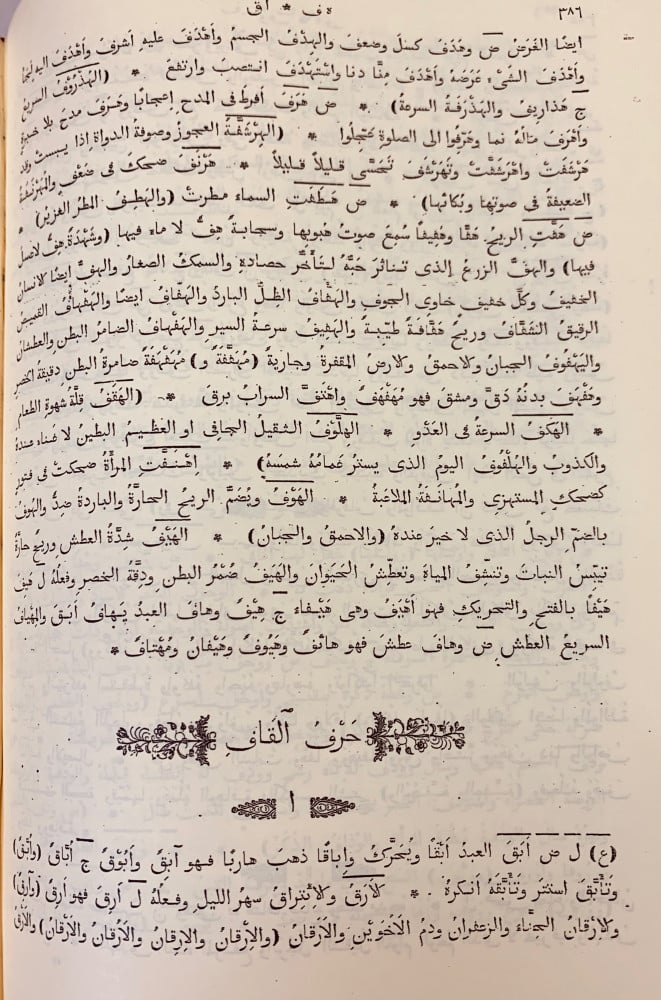 ٣٨٦ ه ف * اق
ايضا الغَرَضُ ض وهَدَفَ كسل وضعف والهِدْفُ الجسمُ وأَهْدَفَ عليهِ أشرفَ وأَهْدَفَ اليهِ لَجَأَ
وأَهْدَفَ الشَّىْءُ عَرَضَهُ وأَهْدَفَ مِنَّا دنا واسْتَهْدَفَ انتصبَ وارتفعَ * (الهُذْرُوفُ السريعُ
ج هَذَاريفُ والهَذْرَفَةُ السرعةُ) * ض هَرَفَ أفرطَ في المدح إعجابًا وهَرَفَ مدحَ بلا خبرةٍ
وأهْرَفَ مالُهُ نما وهَرَّفُوا الى الصلوةِ عَجَّلوا * (الهِرْشَفَّةُ العجوزُ وصوفةُ الدواةِ اذا يبستْ وقد
هَرْشَفَتْ واهْرَشَفَّتْ وتَهَرْشَفَ تَحَسَّى قليلًا قليلًا * هَرْنَفَ ضحكَ في ضَعْفٍ والمُهَرْنِفَةُ
الضعيفةُ في صوتها وبُكائها) * ض هَطَفَتِ السماء مطرتْ (والهَطِفُ المطرُ الغزيرُ) *
ض هَفَّتِ الريحُ هَفًّا وهَفِيفًا سُمِعَ صوتُ هُبوبها وسحابةٌ هِفٌّ لا ماء فيها (وشُهْدَةٌ هِفٌّ لا عسلَ
فيها) والهِفُّ الزرعُ الذى تناثرَ حَبُّهُ لتأخُّرِ حصادِهِ والسمكُ الصغارُ والهفُّ ايضًا الانسانُ
الخفيفُ وكلُّ خفيفٍ خاوى الجوفِ والهَفَّافُ الظِّلُّ الباردُ والهَفَّافُ ايضًا والهَفْهَافُ القميصُ
الرقيقُ الشفَّافُ وريحٌ هَفَّافةٌ طيّبةٌ والهَفِيفُ سرعةُ السيرِ والهَفْهافُ الضامرُ البطنِ والعطشانُ
واليَهْفوفُ الجبانُ والاحمقُ والارضُ المقفرةُ وجاريةٌ (مُهَفَّفَةٌ و) مُهَفْهَفَةٌ ضامرةُ البطنِ دقيقةُ الخصرِ
وهَفْهَفَ بدنُهُ دَقَّ ومشقَ فهو مُهَفْهَفٌ واهْتَفَّ السرابُ برقَ * (الهَقَفُ قِلَّةُ شهوةِ الطعامِ
* الهَكْفُ السرعةُ في العَدْوِ * الهِلَّوْفُ الثقيلُ الجافي او العظيمُ البطينُ لا غناء عندهُ
والكذوبُ والهُلْفُوفُ اليومُ الذى يسترُ غمامُهُ شمسَهُ) * إهْنَفَتِ المرأةُ ضحكتْ في فتورٍ
كضحكِ المستهزى والمُهانَفةُ الملاعبةُ * الهَوْفُ ويُضَمُّ الريحُ الحارَّةُ والباردةُ ضِدٌّ والهُوفُ
بالضمِّ الرجلُ الذى لا خيرَ عندهُ (والاحمقُ والجبانُ) * الهَيْفُ شِدَّةُ العطشِ وريحٌ حارَّةٌ
تيبّسُ النباتَ وتنشّفُ المياهَ وتعطّشُ الحَيَوانَ والهَيَفُ ضُمْرُ البطنِ ودِقَّةُ الخصرِ وفعلُهُ ل هَيِفَ
هَيْفًا بالفتحِ والتحريكِ فهو أهْيَفُ وهى هَيْفاء ج هِيْفٌ وهافَ العبدُ يَهافُ أبَقَ والمِهْيافُ
السريعُ العطشِ ض وهافَ عطشَ فهو هائفٌ وهَيُوفٌ وهَيْفانُ ومُهْتافٌ *
حَرْفُ ٱلْقَافِ
ا
(ع) ل ض أَبَقَ العبدُ أَبْقًا ويُحَرَّكُ وإباقًا ذهبَ هاربًا فهو آبقٌ وأَبُوقٌ ج أُبَّاقٌ (وأُبَّقٌ)
وتَأَبَّقَ استترَ وتَأَبَّقَهُ أنكرهُ * الأَرَقُ والائْتِراقُ سهرُ الليلِ وفعلُهُ ل أَرِقَ فهو أَرِقٌ (وآرِقٌ)
والأَرَقانُ الحِنَّاء والزعفرانُ ودمُ الأَخَوَيْنِ والأَرَقانُ (والإرْقانُ والأَرْقانُ والأَرَقانُ) والأَرَقُ